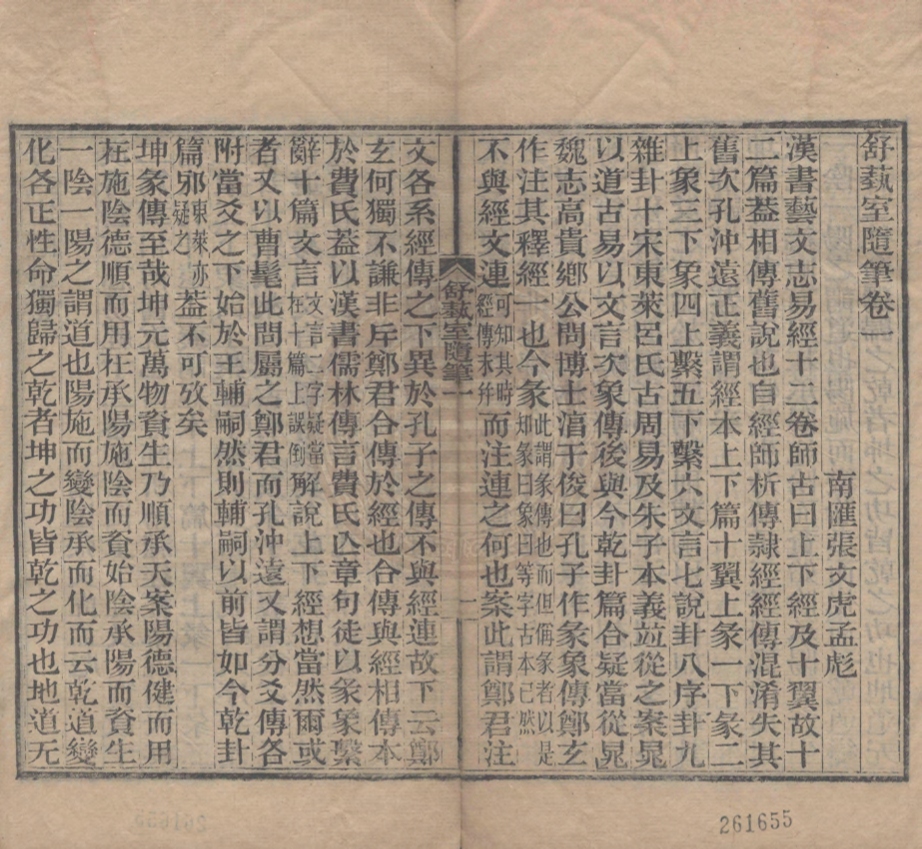 舒蓺室隨筆卷一
南匯張文虎孟彪
漢書藝文志易經十二卷師古曰上下經及十翼故十
二篇葢相傳舊說也自經師析傳隷經經傳混淆失其
舊次孔沖遠正義謂經本上下篇十翼上彖一下彖二
上象三下象四上繫五下繫六文言七說卦八序卦九
雜卦十宋東萊呂氏古周易及朱子本義竝從之案晁
以道古易以文言次象傳後與今乾卦篇合疑當從晁
魏志高貴鄉公問博士淯于俊曰孔子作彖象傳鄭玄
作注其釋經一也今彖此謂彖傳也而但偁彖者以是知彖曰象曰等字古本已然
不與經文連可知其時經傳未幷而注連之何也案此謂鄭君注
文各系經傳之下異於孔子之傳不與經連故下云鄭
玄何獨不謙非斥鄭君合傳於經也合傳與經相傳本
於費氏葢以漢書儒林傳言費氏亾章句徒以彖象繫
辭十篇文言文言二字疑當在十篇上誤倒解說上下經想當然爾或
者又以曹髦此問屬之鄭君而孔沖遠又謂分爻傳各
附當爻之下始於王輔嗣然則輔嗣以前皆如今乾卦
篇邪東萊亦疑之葢不可攷矣
坤彖傳至哉坤元萬物資生乃順承天案陽德健而用
在施陰德順而用在承陽施陰而資始陰承陽而資生
一陰一陽之謂道也陽施而變陰承而化而云乾道變
化各正性命獨歸之乾者坤之功皆乾之功也地道无
舒蓺室隨筆一
一
261655